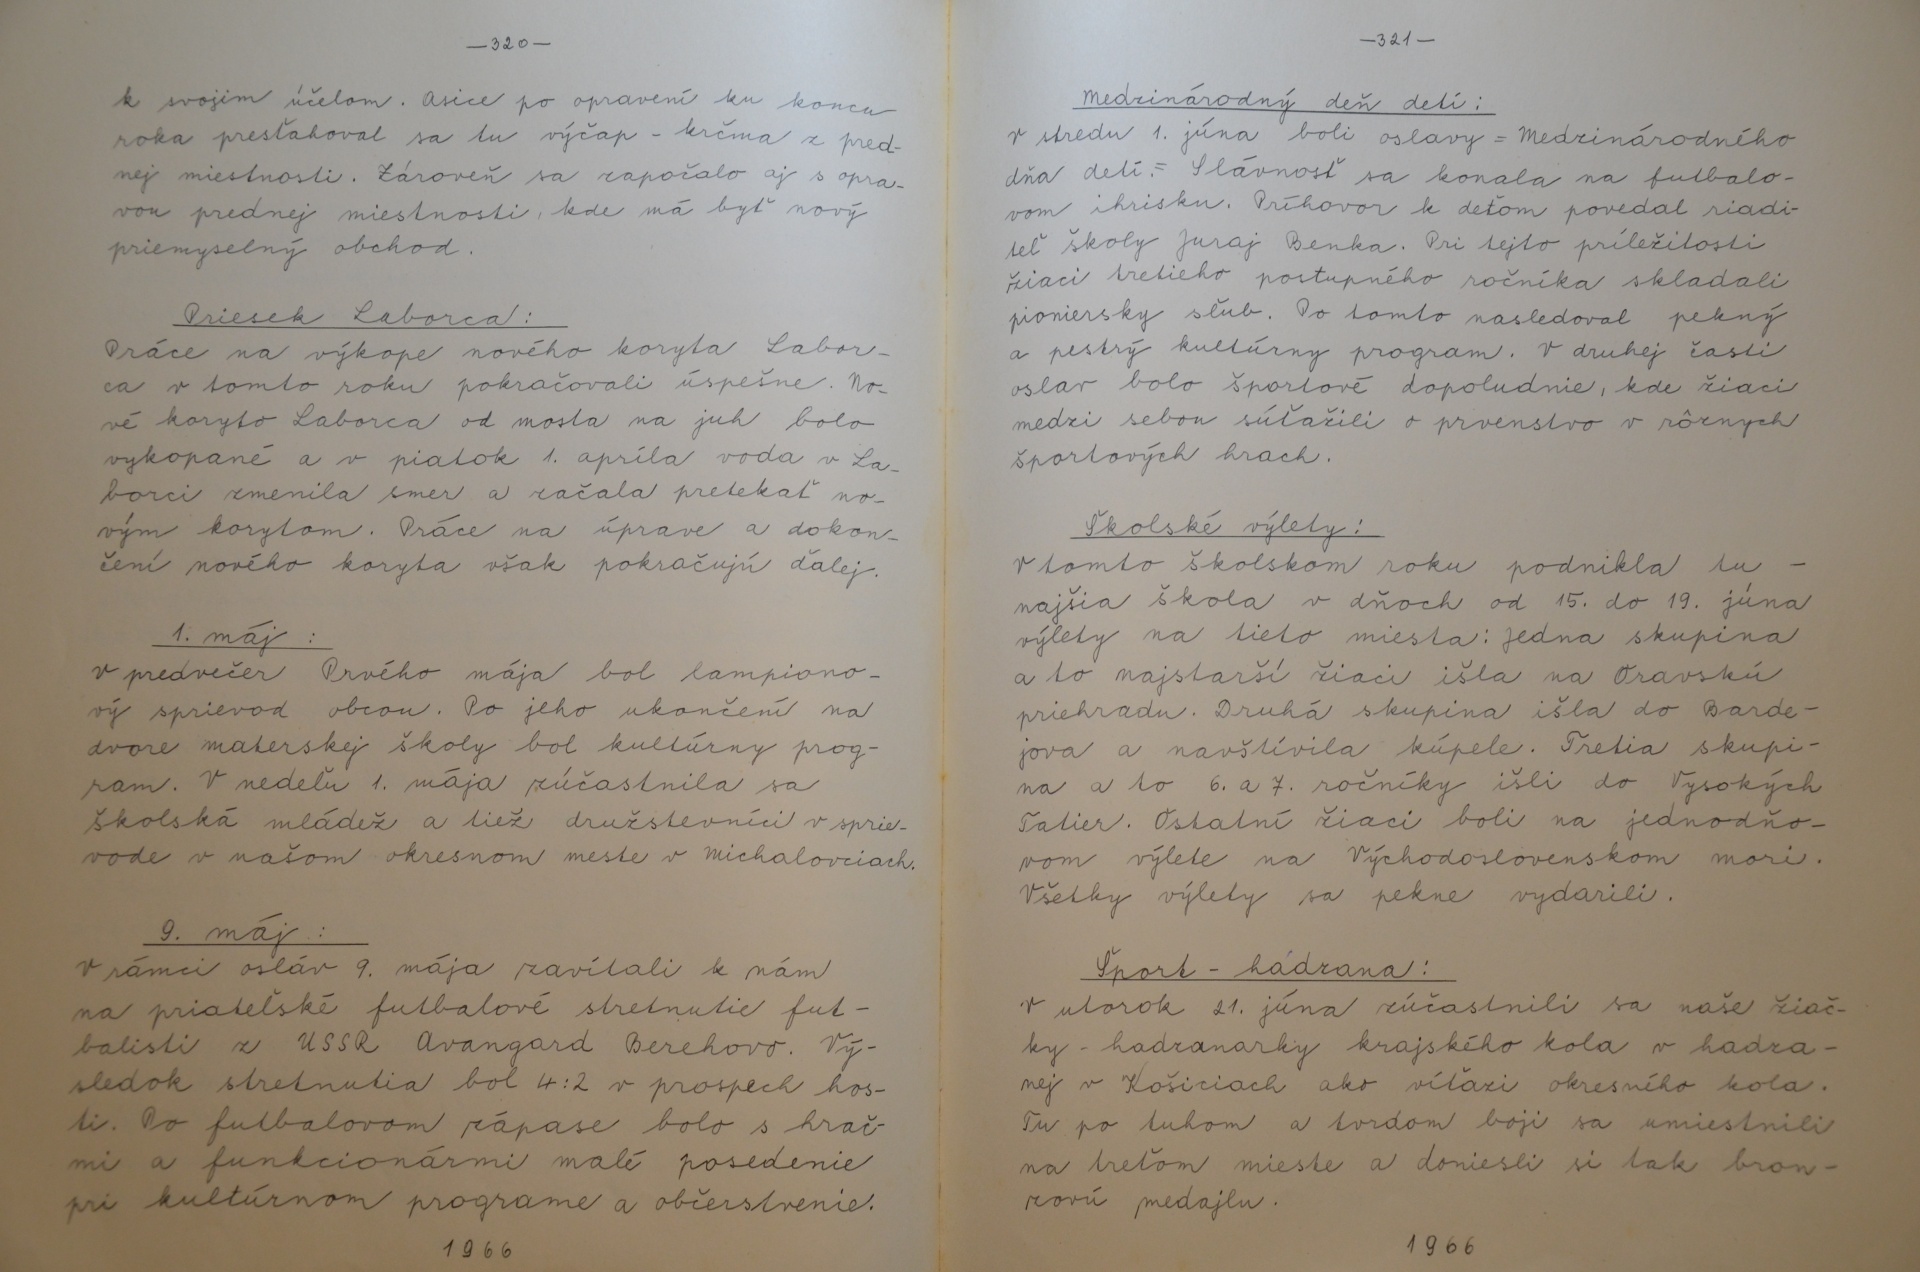 —320—
k svojim účelom. Asice po opravení ku koncu
roka presťahoval sa tu výčap - krčma z pred-
nej miestnosti. Zároveň sa započalo aj s opra-
vou prednej miestnosti, kde má byť nový
priemyselný obchod.
Priesek Laborca:
Práce na výkope nového koryta Labor-
ca v tomto roku pokračovali úspešne. No-
vé koryto Laborca od mosta na juh bolo
vykopané a v piatok 1. apríla voda v La-
borci zmenila smer a začala pretekať no-
vým korytom. Práce na úprave a dokon-
čení nového koryta však pokračujú ďalej.
1. máj :
V predvečer Prvého mája bol lampiono-
vý sprievod obcou. Po jeho ukončení na
dvore materskej školy bol kultúrny prog-
ram. V nedeľu 1. mája zúčastnila sa
školská mládež a tiež družstevníci v sprie-
vode v našom okresnom meste v Michalovciach.
9. máj :
V rámci osláv 9. mája zavítali k nám
na priateľské futbalové stretnutie fut-
balisti z USSR Avangard Berehovo. Vý-
sledok stretnutia bol 4:2 v prospech hos-
ti. Po futbalovom zápase bolo s hráč-
mi a funkcionármi malé posedenie
pri kultúrnom programe a občerstvenie.
1966
—321—
Medzinárodný deň detí:
V stredu 1. júna boli oslavy = Medzinárodného
dňa detí.= Slávnosť sa konala na futbalo-
vom ihrisku. Príhovor k deťom povedal riadi-
teľ školy Juraj Benka. Pri tejto príležitosti
žiaci tretieho postupného ročníka skladali
pioniersky sľub. Po tomto nasledoval pekný
a pestrý kultúrny program. V druhej časti
oslav bolo športové dopoludnie, kde žiaci
medzi sebou súťažili o prvenstvo v rôznych
športových hrach.
Školské výlety:
V tomto školskom roku podnikla tu -
najšia škola v dňoch od 15. do 19. júna
výlety na tieto miesta: Jedna skupina
a to najstarší žiaci išla na Oravskú
priehradu. Druhá skupina išla do Barde-
jova a navštívila kúpele. Tretia skupi-
na a to 6. a 7. ročníky išli do Vysokých
Tatier. Ostatní žiaci boli na jednodňo-
vom výlete na Východoslovenskom mori.
Všetky výlety sa pekne vydarili.
Šport - hádzana:
V utorok 21. júna zúčastnili sa naše žiač-
ky - hadzanarky krajského kola v hadza-
nej v Košiciach ako víťazi okresného kola.
Tu po tuhom a tvrdom boji sa umiestnili
na treťom mieste a doniesli si tak bron-
zovú medajlu.
1966